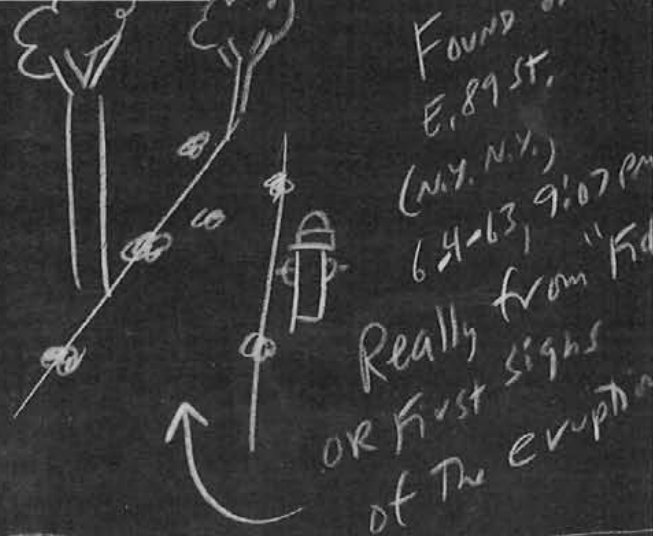 Found
E. 89 St.
(N.Y. N.Y.)
6-4-63, 9:07 PM
Really from
OR First signs
of The